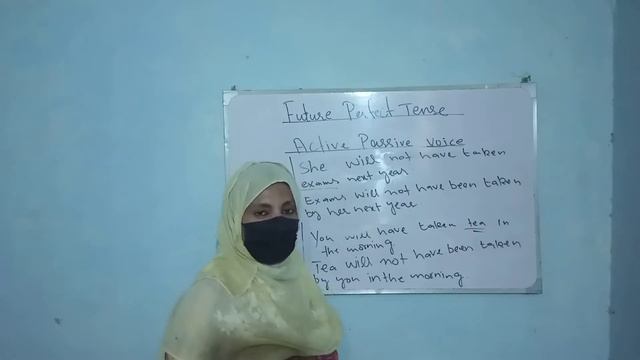 Future Perfect Tense
Active Passive voice
She will not have taken
exams next year
Exams will not have been taken
by her next year
You will have taken tea in
the morning
Tea will not have been taken
by you in the morning